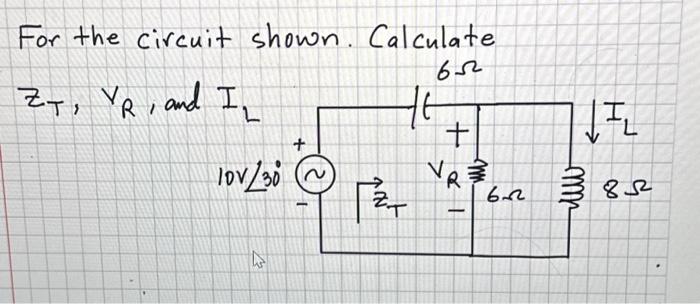 For the circuit shown. Calculate
Z_T, V_R, and I_L
6Ω
+
10V∠30°
-
Z_T
+
V_R
-
6Ω
I_L
8Ω